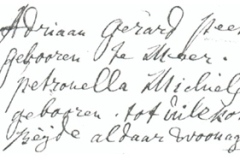 Adriaan Gerard Peer
gebooren te Meer.
petronella Michiel
gebooren. tot
beyde aldaar woonag